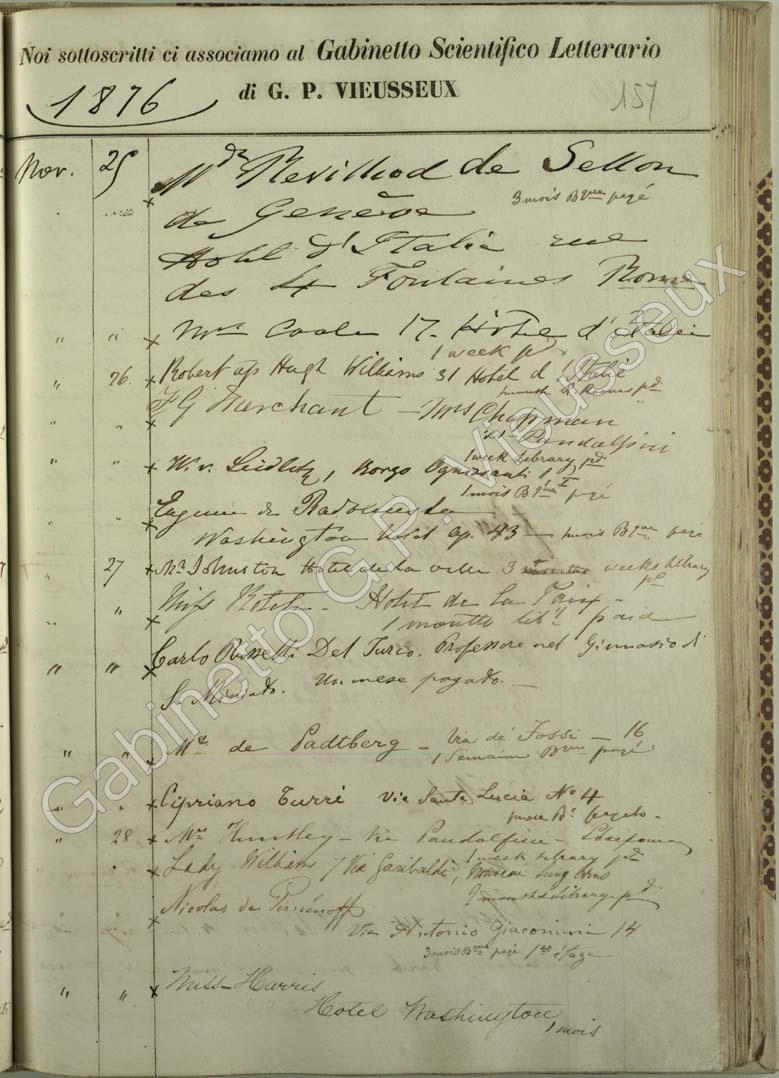 Noi sottoscritti ci associamo al Gabinetto Scientifico Letterario
di G. P. VIEUSSEUX
1876
157
Nov. 25 x Mde Revilliod de Sellon
3 mois Bque payé
de Genève
Hotel d'Italie rue
des 4 Fontaines Rome
" " x Mrs 17. Hotel d'Italie
1 week pd
" 26. x Robert ap Hugh Williams 31 Hotel d'Italie
" " x F G Marchant — Mrs Chapman
Pandolfini
1 week Library pd
" " x W. v. Seidlitz, Borgo Ognissanti
1 mois Bque payé
" " x Eugenie de
Washington Hotel ap. 43 — mois Bque payé
" 27 x Mr Johnston Hotel de la ville 3 weeks Library
pd
" " x Miss Hotel de la Paix -
1 month paid
" " x Carlo Del Turco. Professore nel Ginnasio di
S. Miniato. Un mese pagato. —
" " x de Padtberg — Via de' Fossi — 16
1 Semaine payé
" " x Cipriano Turri Via Santa Lucia No 4
" 28 x Mrs Huntley — Via Pandolfini —
1 week Library pd
x Lady Williams 7 Via Garibaldi, Lung Arno
2 months Library pd
x Nicolas de Piménoff
Via Antonio Giacomini 14
3 mois Bque payé 1er étage
" " x Miss Harris
Hotel Washington
1 mois
Gabinetto G.P. Vieusseux